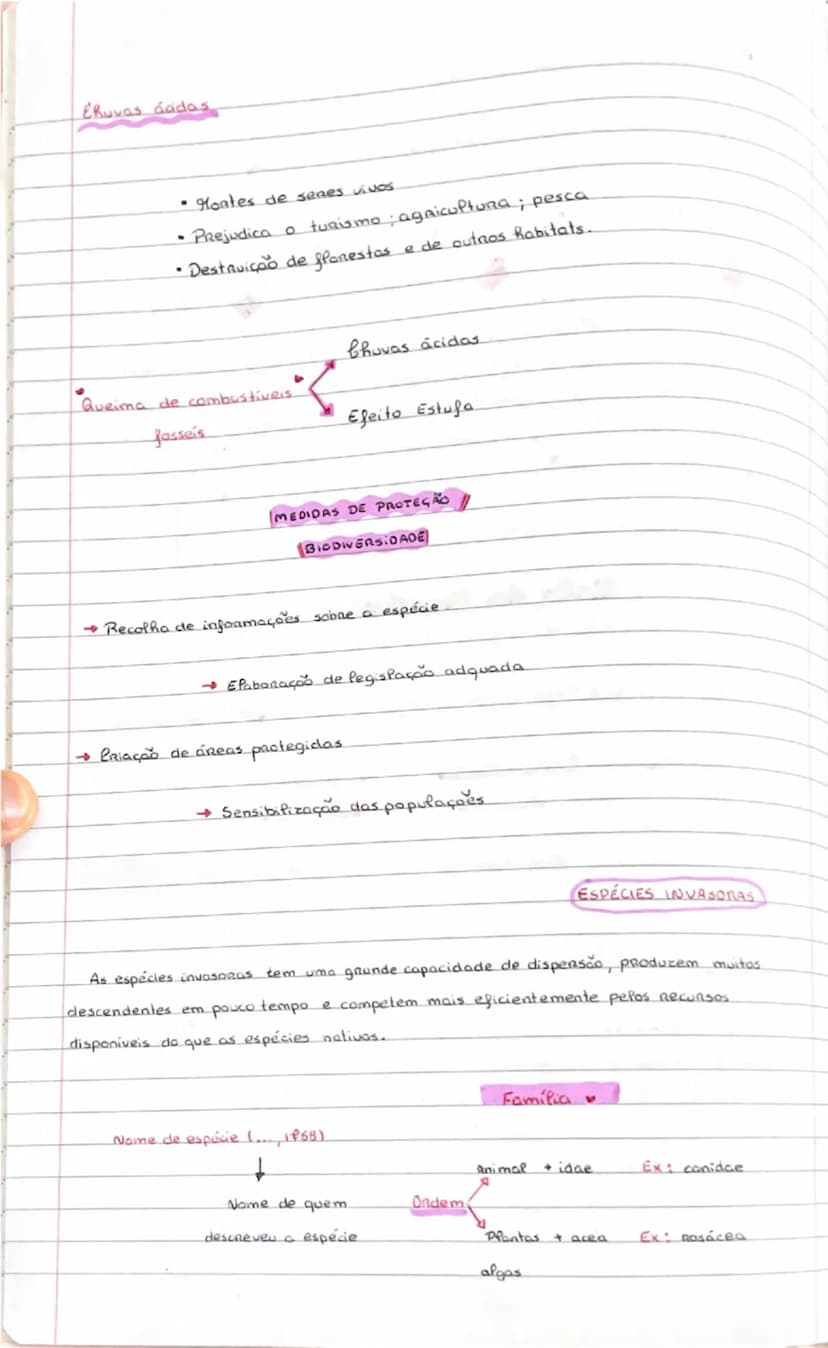 Chuvas ácidas
• Mortes de seres vivos
• Prejudica o turismo; agricultura; pesca
• Destruição de florestas e de outros habitats.
Chuvas ácidas
Queima de combustíveis
fosseis
Efeito Estufa
MEDIDAS DE PROTEÇÃO
BIODIVERSIDADE
→ Recolha de informações sobre a espécie
→ Elaboração de legislação adquada
→ Criação de áreas protegidas
→ Sensibilização das populações
ESPÉCIES INVASORAS
As espécies invasoras tem uma grande capacidade de dispersão, produzem muitos
descendentes em pouco tempo e competem mais eficientemente pelos recursos
disponiveis do que as espécies nativas.
Família
Nome de espécie (...,1758)
Animal + idae Ex: canidae
Nome de quem
descreveu a espécie
Ordem
Plantas + acea Ex: rosácea
algas